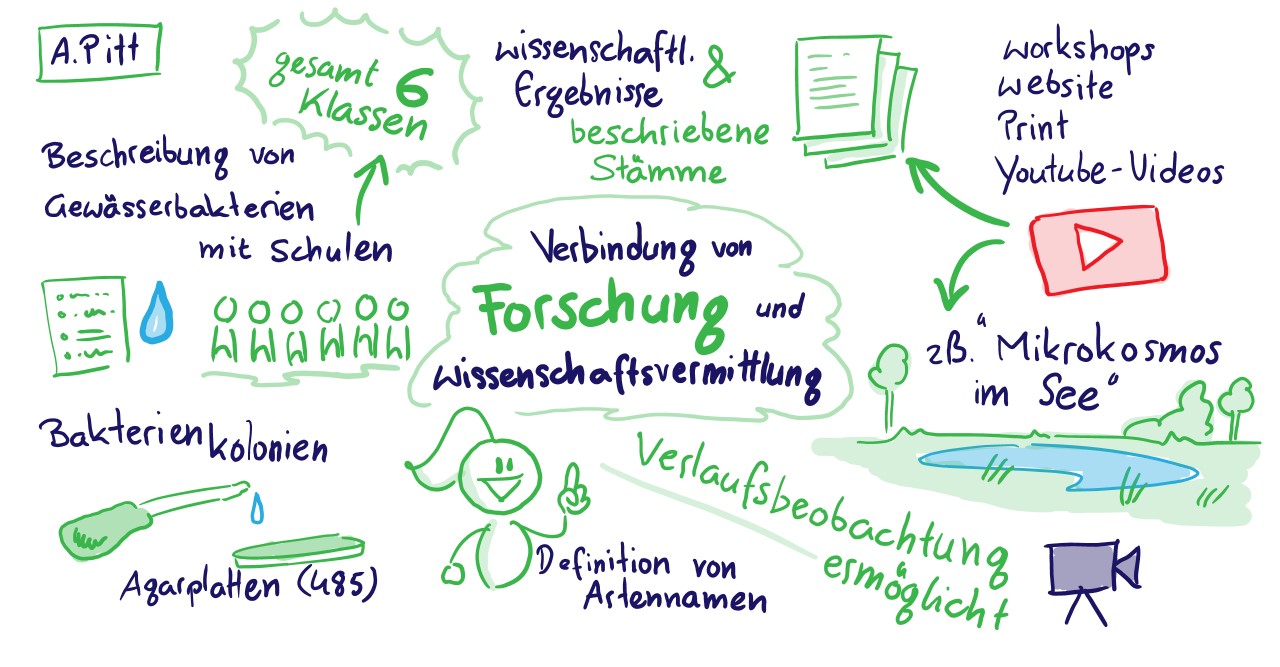 A.Pitt
gesamt 6
Klassen
wissenschaftl. &
Ergebnisse
beschriebene
Stämme
workshops
website
Print
Youtube-Videos
Beschreibung von
Gewässerbakterien
mit Schulen
Verbindung von
Forschung und
wissenschaftsvermittlung
zB. "Mikrokosmos
im See"
Bakterienkolonien
Agarplatten (485)
Definition von
Artennamen
Verlaufsbeobachtung
ermöglicht